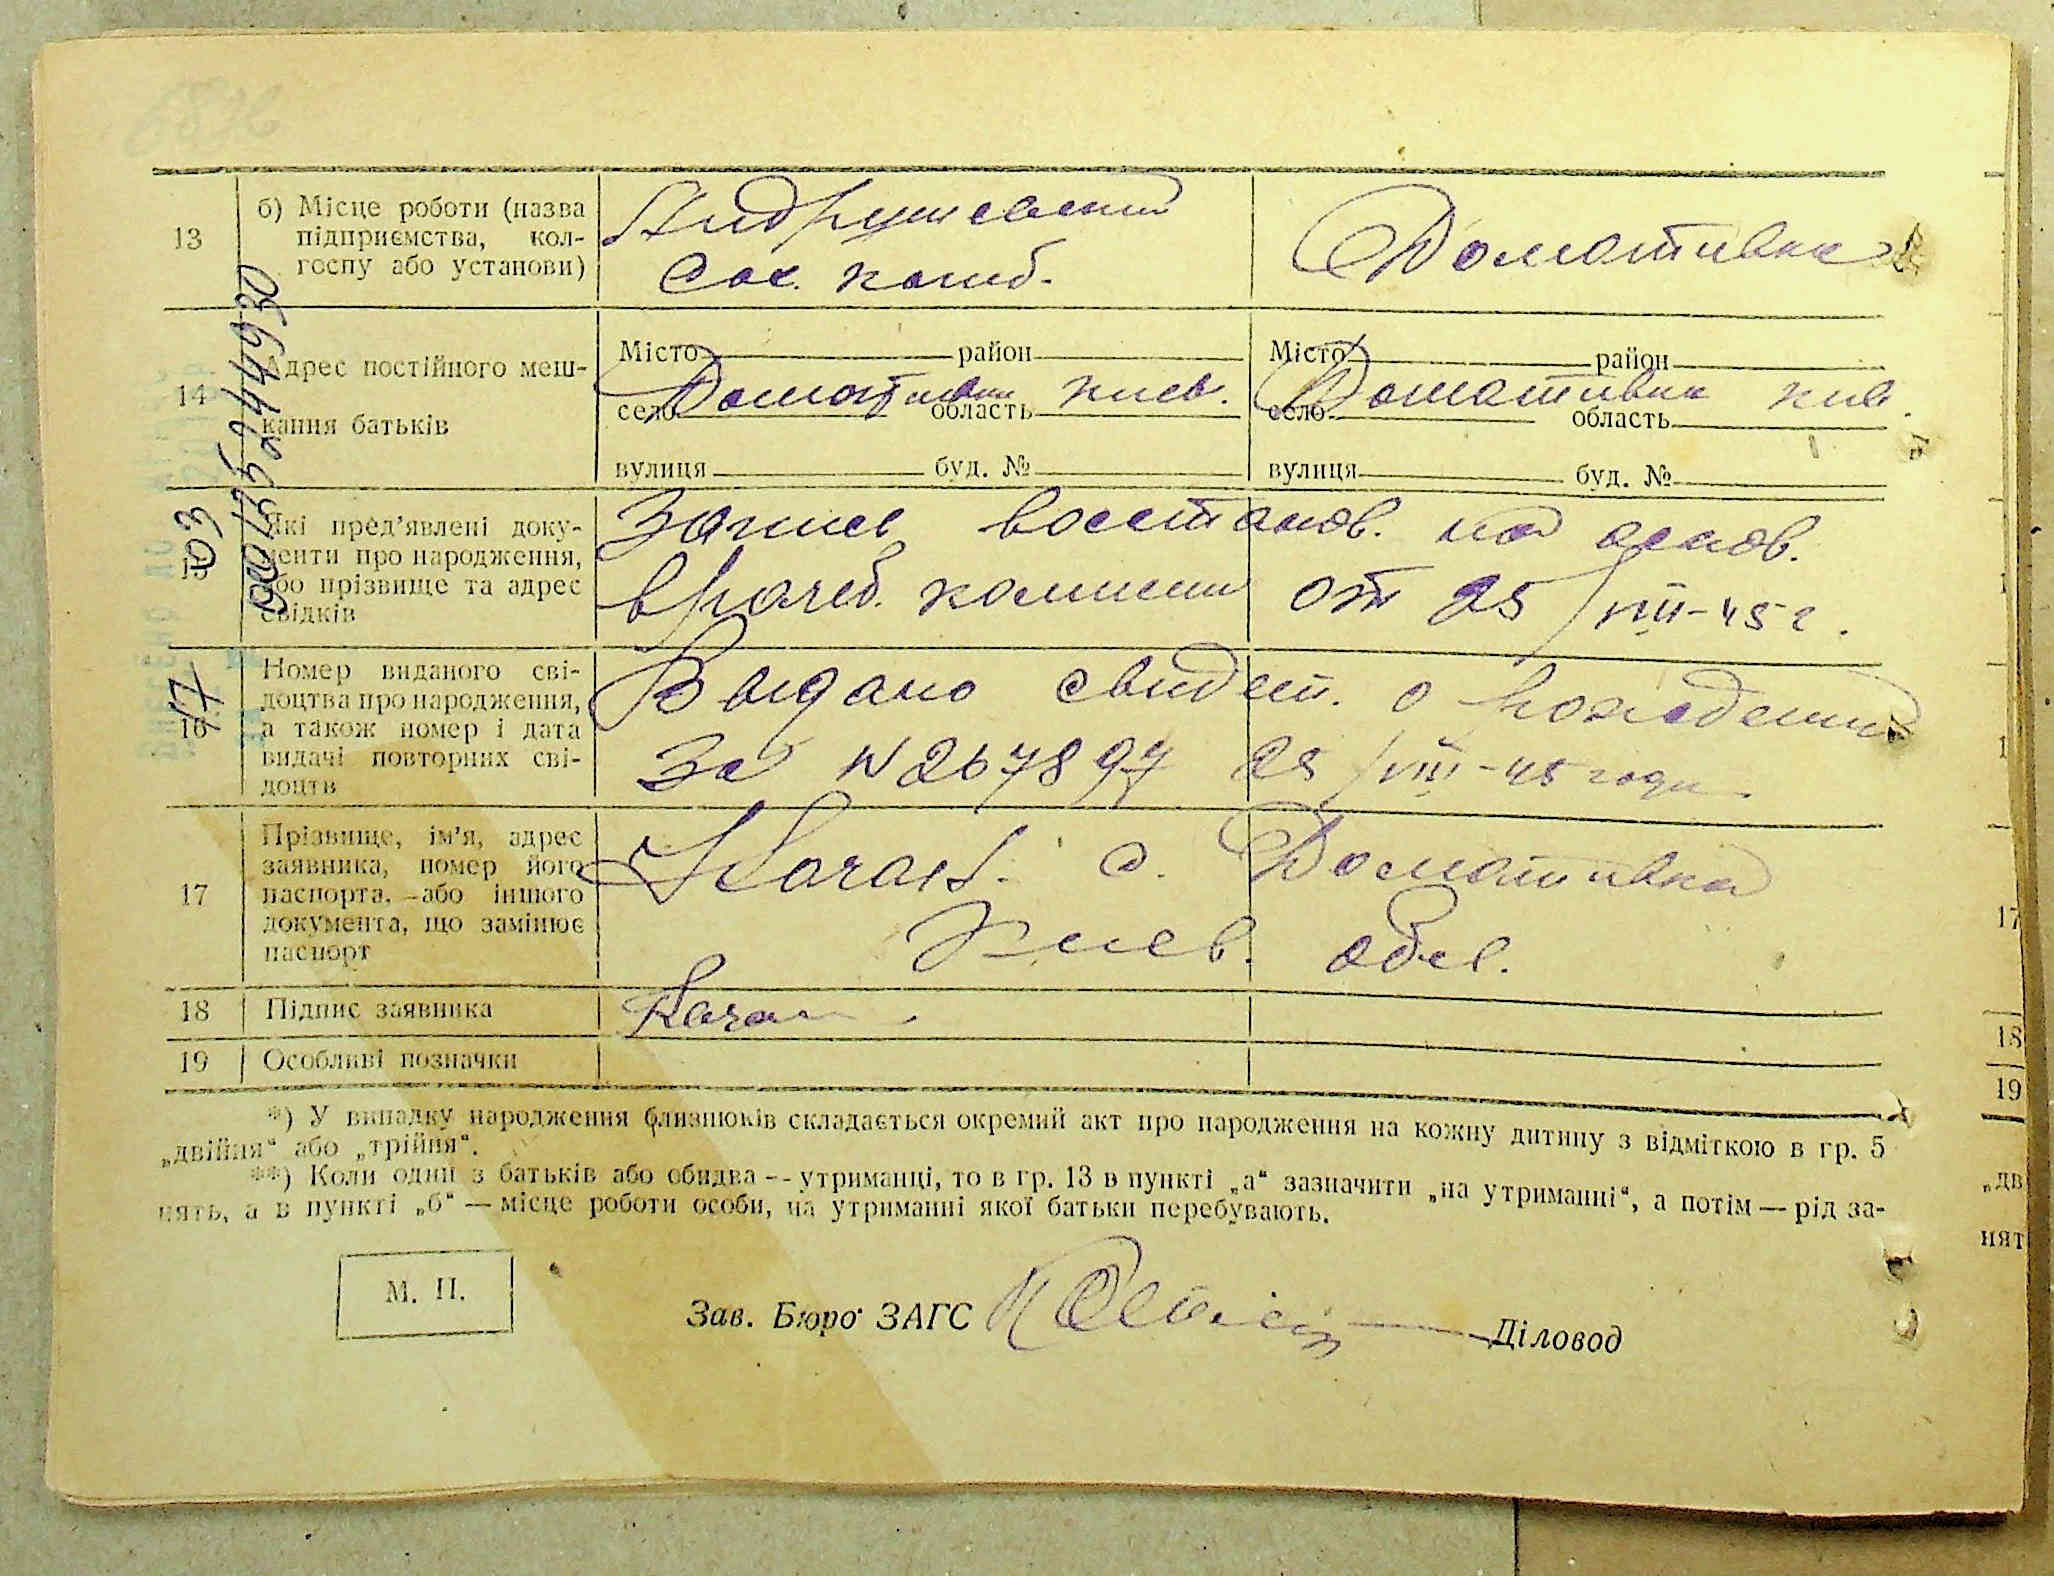 13
б) Місце роботи (назва
підприємства, кол-
госпу або установи)
Андрушевский
сах. комб.
Домативка
14
Адрес постійного меш-
кання батьків
Місто район
село Домативка область киев.
вулиця буд. №
Місто район
село Домативка область киев.
вулиця буд. №
15
Які пред’явлені доку-
менти про народження,
або прізвище та адрес
свідків
Запись восстанов. на основ.
врачеб. комиссии от 25/VIII-45 г.
16
Номер виданого сві-
доцтва про народження,
а також номер і дата
видачі повторних сві-
доцтв
Выдано свидет. о рождении
за N 267897 25/VIII-45 года
17
Прізвище, ім’я, адрес
заявника, номер його
паспорта, або іншого
документа, що замінює
паспорт
с. Домативка
Киев. обл.
18
Підпис заявника
19
Особливі позначки
*) У випадку народження близнюків складається окремий акт про народження на кожну дитину з відміткою в гр. 5
„двійня“ або „трійня“.
**) Коли один з батьків або обидва -- утриманці, то в гр. 13 в пункті „а“ зазначити „на утриманні“, а потім — рід за-
нять, а в пункті „б“ — місце роботи особи, на утриманні якої батьки перебувають.
М. П.
Зав. Бюро ЗАГС
Діловод
17
18
19
„дв
нят